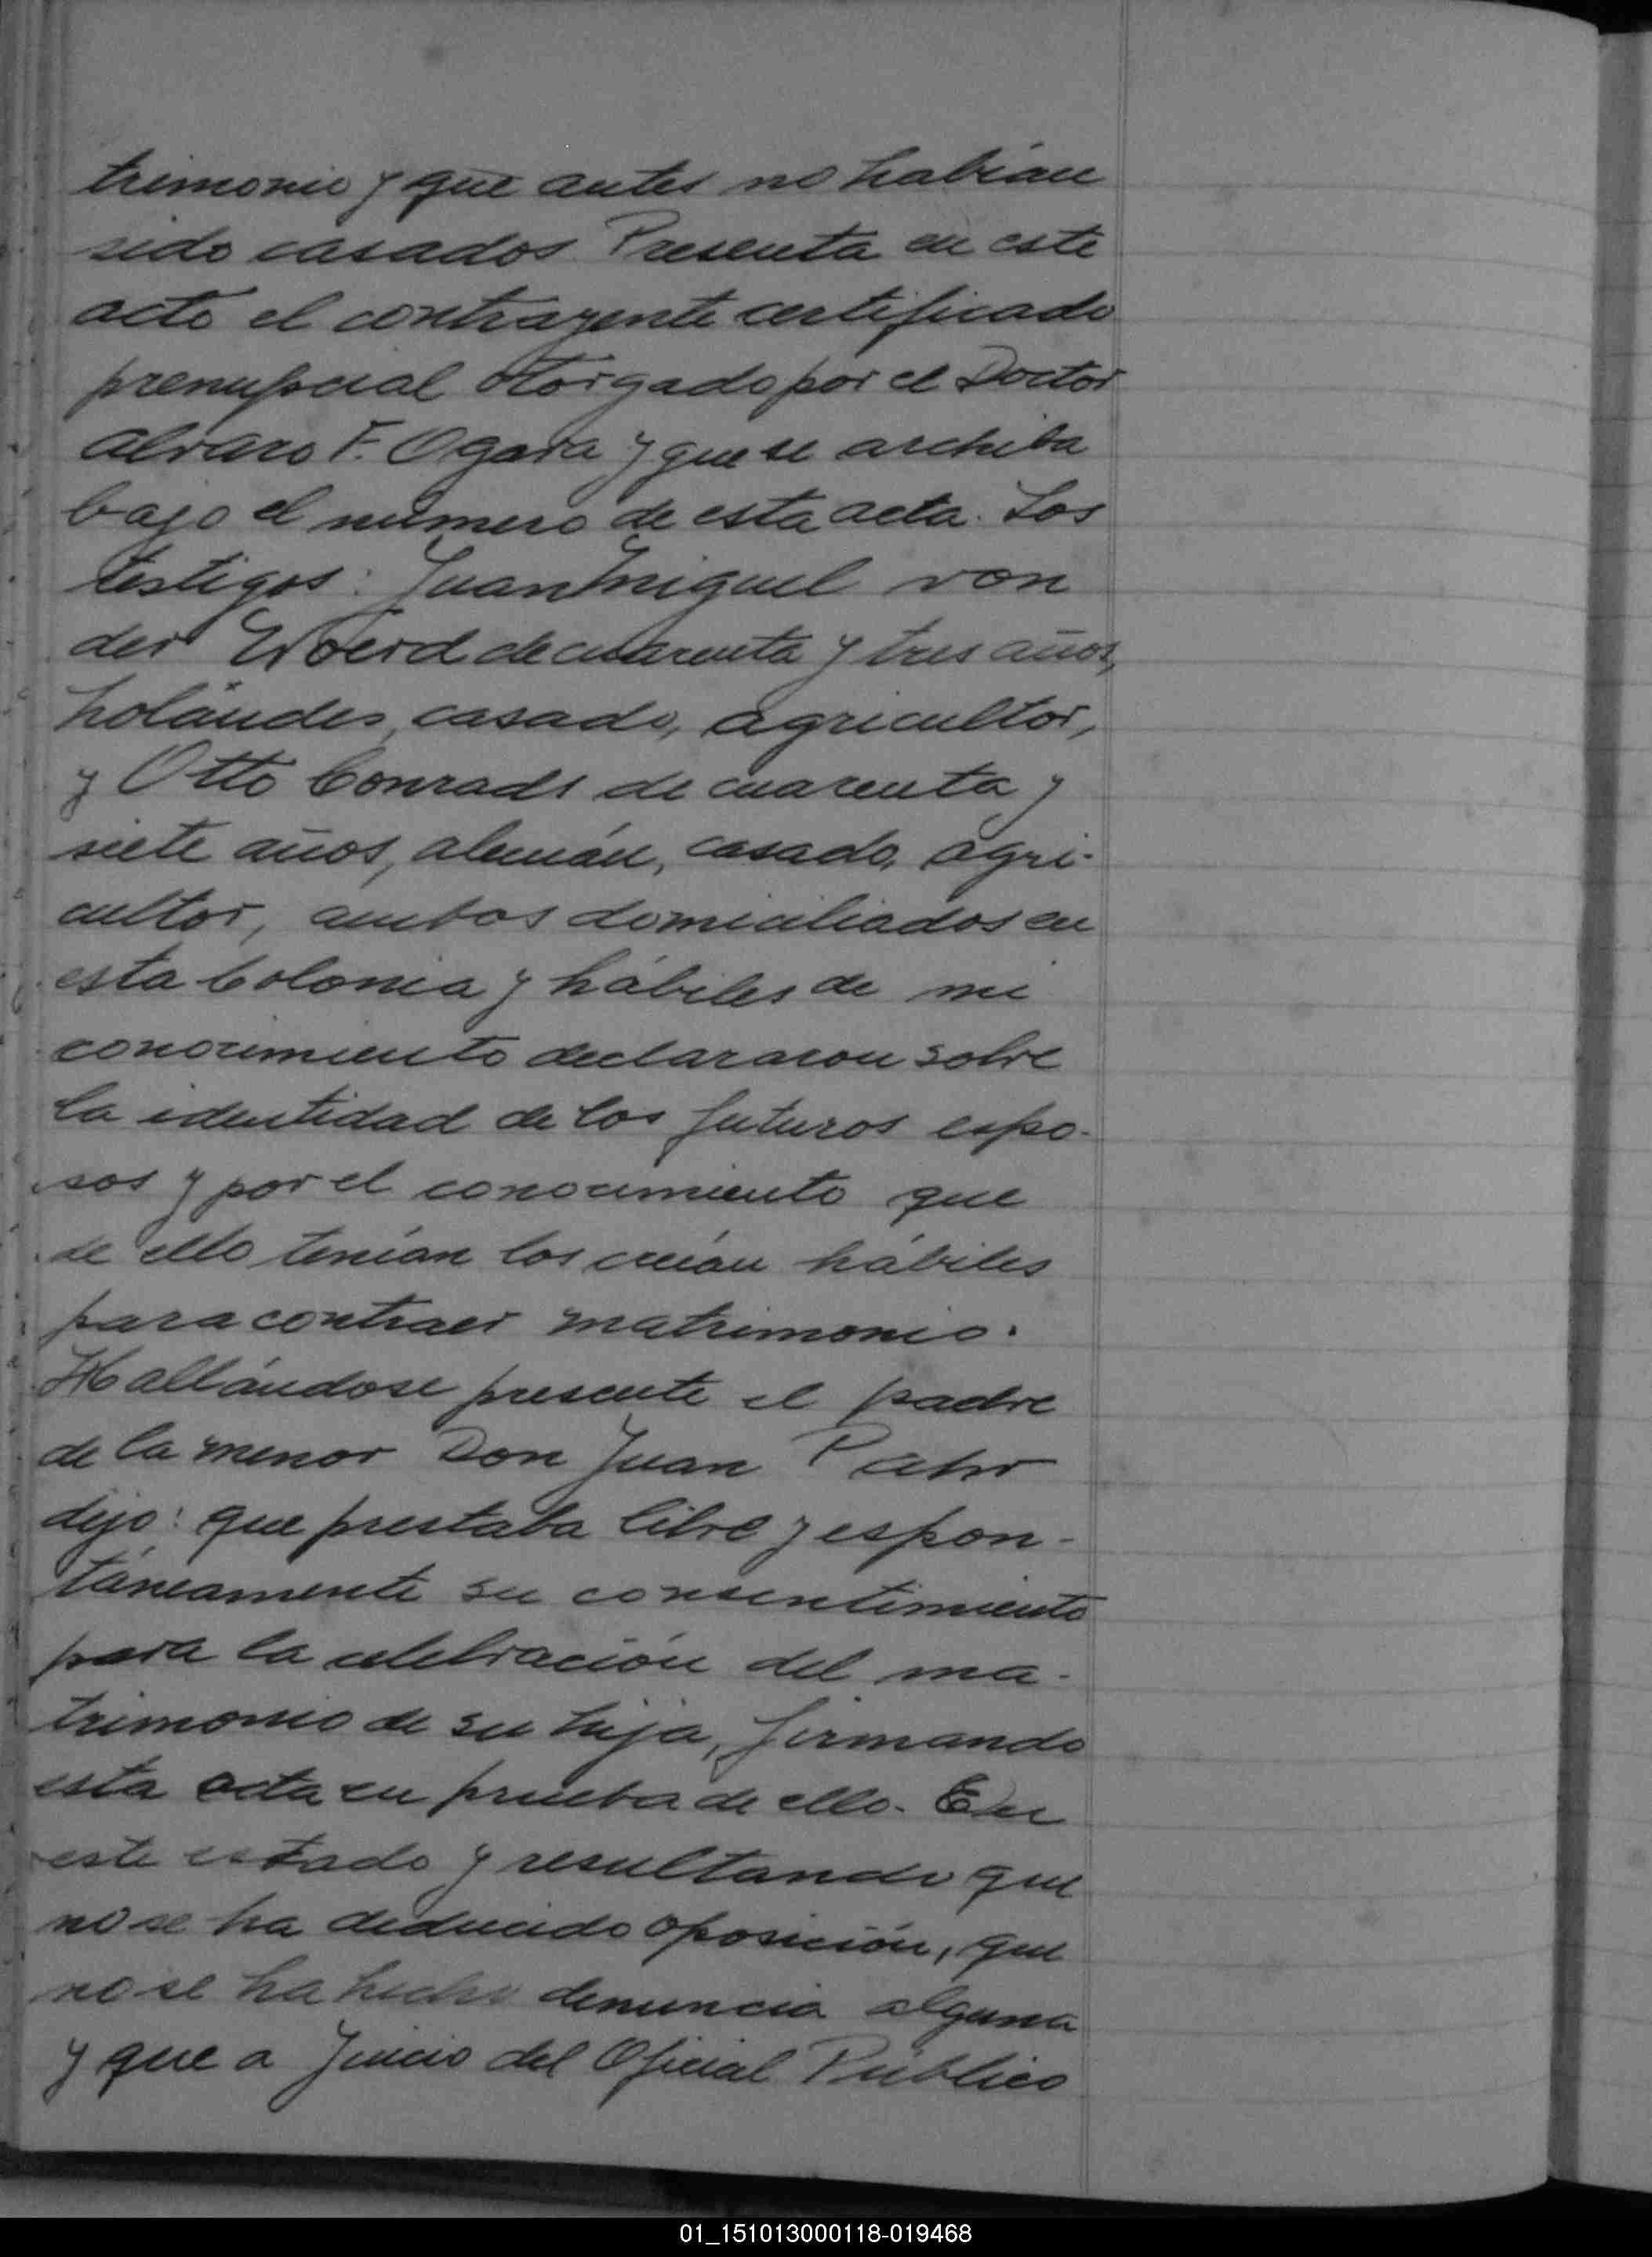 trimonio y que antes no habían
sido casados. Presenta en este
acto el contrayente certificado
prenupcial otorgado por el Doctor
Alvaro F. Ogara y que se archiba
bajo el número de esta acta. Los
testigos: Juan Miguel von
der Woerd de cuarenta y tres años,
holándes, casado, agricultor,
y Otto Conrads de cuarenta y
siete años, alemán, casado, agri-
cultor, ambos domiciliados en
esta Colonia y hábiles de mi
conocimiento declararon sobre
la identidad de los futuros espo-
sos y por el conocimiento que
de ello tenían los creían hábiles
para contraer matrimonio.
Hallándose presente el padre
de la menor Don Juan
dijo: que prestaba libre y espon-
táneamente su consentimiento
para la celebración del ma-
trimonio de su hija, firmando
esta acta en prueba de ello. En
este estado y resultando que
no se ha deducido oposición, que
no se ha hecho denuncia alguna
y que a Juicio del Oficial Público
01_151013000118-019468